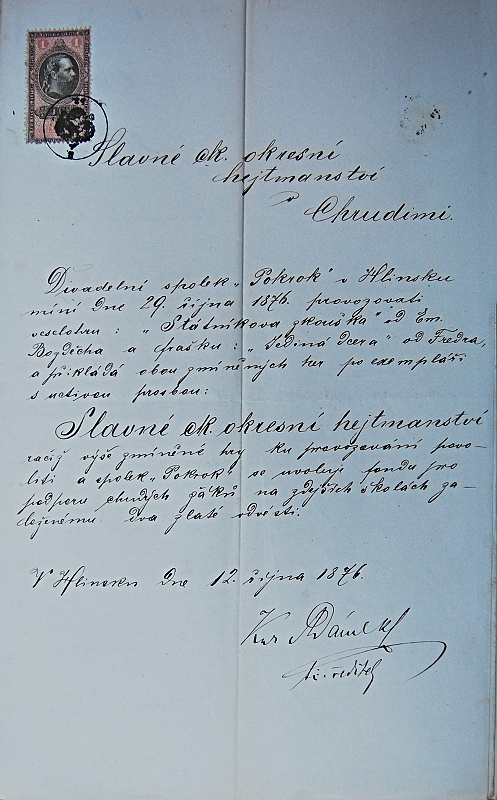 1 1
Slavné ck. okresní
hejtmanství
v
Chrudimi.
Divadelní spolek „Pokrok" v Hlinsku
míní dne 29. října 1876. provozovati
veselohru: „Státníkova zkouška" od Em.
Bozděcha a frašku: „Jediná dcera" od Fredra,
a přikládá obou zmíněných her po exempláři
s uctivou prosbou:
Slavné ck. okresní hejtmanství
račiž výše zmíněné hry ku provozování povo-
liti a spolek „Pokrok" se uvoluje fondu pro
podporu chudých žáků na zdejších školách za-
loženému dva zlaté odvésti.
V Hlinsku dne 12. října 1876.
Adámek
t. č. ředitel